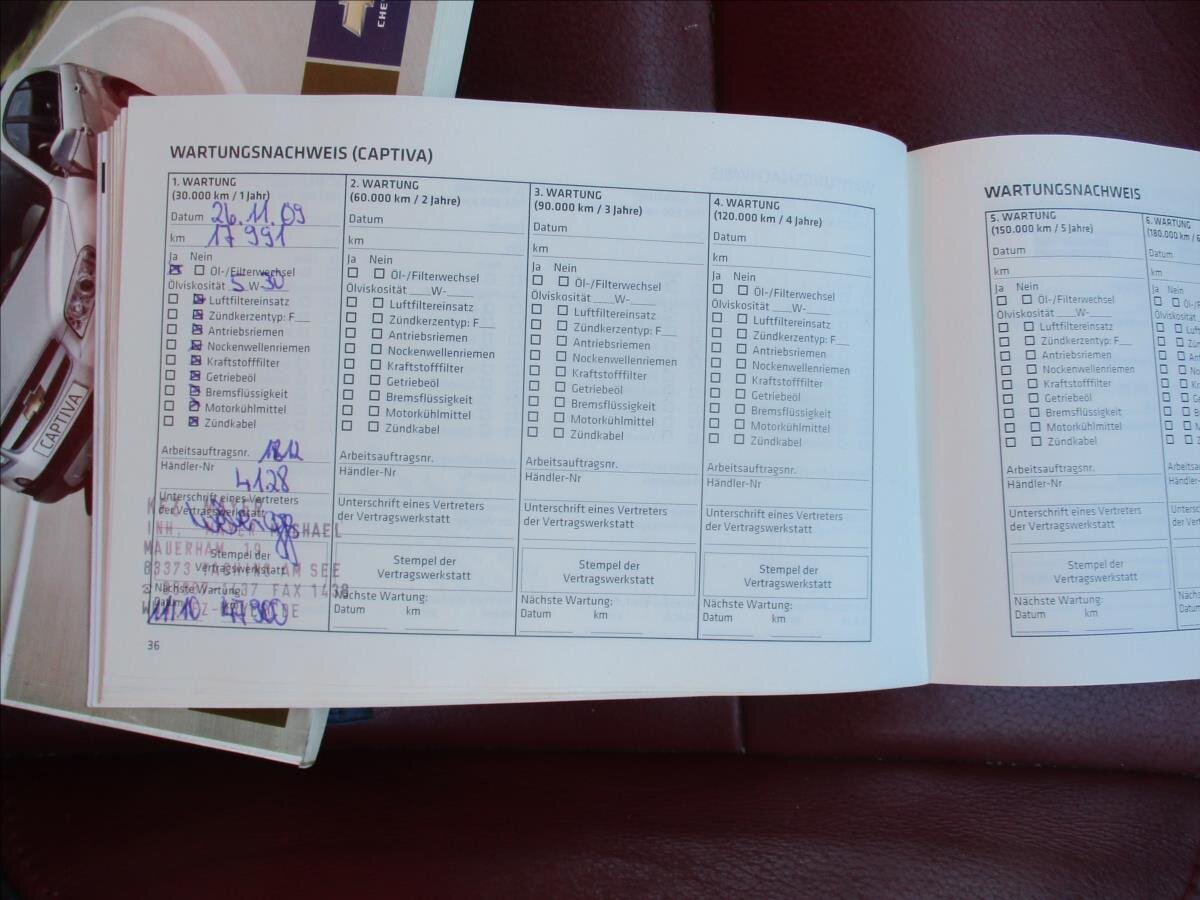 CHE
CAPTIVA
WARTUNGSNACHWEIS (CAPTIVA)
1. WARTUNG
(30.000 km / 1 Jahr)
Datum 26.11.09
km 17 991
Ja Nein
Öl-/Filterwechsel
Ölviskosität 5 W-30
Luftfiltereinsatz
Zündkerzentyp: F__
Antriebsriemen
Nockenwellenriemen
Kraftstofffilter
Getriebeöl
Bremsflüssigkeit
Motorkühlmittel
Zündkabel
Arbeitsauftragsnr.
Händler-Nr 4128
Unterschrift eines Vertreters
der Vertragswerkstatt
INH.
MAUERHAM 19
Stempel der
Vertragswerkstatt
83373 AM SEE
1437 FAX 1438
Nächste Wartung:
Datum km
11/10
2. WARTUNG
(60.000 km / 2 Jahre)
Datum
km
Ja Nein
Öl-/Filterwechsel
Ölviskosität ___W-____
Luftfiltereinsatz
Zündkerzentyp: F__
Antriebsriemen
Nockenwellenriemen
Kraftstofffilter
Getriebeöl
Bremsflüssigkeit
Motorkühlmittel
Zündkabel
Arbeitsauftragsnr.
Händler-Nr
Unterschrift eines Vertreters
der Vertragswerkstatt
Stempel der
Vertragswerkstatt
Nächste Wartung:
Datum km
3. WARTUNG
(90.000 km / 3 Jahre)
Datum
km
Ja Nein
Öl-/Filterwechsel
Ölviskosität ___W-____
Luftfiltereinsatz
Zündkerzentyp: F__
Antriebsriemen
Nockenwellenriemen
Kraftstofffilter
Getriebeöl
Bremsflüssigkeit
Motorkühlmittel
Zündkabel
Arbeitsauftragsnr.
Händler-Nr
Unterschrift eines Vertreters
der Vertragswerkstatt
Stempel der
Vertragswerkstatt
Nächste Wartung:
Datum km
4. WARTUNG
(120.000 km / 4 Jahre)
Datum
km
Ja Nein
Öl-/Filterwechsel
Ölviskosität ___W-____
Luftfiltereinsatz
Zündkerzentyp: F__
Antriebsriemen
Nockenwellenriemen
Kraftstofffilter
Getriebeöl
Bremsflüssigkeit
Motorkühlmittel
Zündkabel
Arbeitsauftragsnr.
Händler-Nr
Unterschrift eines Vertreters
der Vertragswerkstatt
Stempel der
Vertragswerkstatt
Nächste Wartung:
Datum km
36
WARTUNGSNACHWEIS
5. WARTUNG
(150.000 km / 5 Jahre)
Datum
km
Ja Nein
Öl-/Filterwechsel
Ölviskosität ___W-____
Luftfiltereinsatz
Zündkerzentyp: F__
Antriebsriemen
Nockenwellenriemen
Kraftstofffilter
Getriebeöl
Bremsflüssigkeit
Motorkühlmittel
Zündkabel
Arbeitsauftragsnr.
Händler-Nr
Unterschrift eines Vertreters
der Vertragswerkstatt
Stempel der
Vertragswerkstatt
Nächste Wartung:
Datum km
6. WARTUNG
(180.000 km / 6
Datum
km
Ja Nein
Ölviskosität
Arbeitsauf
Händler-Nr
Untersch
der Vertr
Nächste
Datum